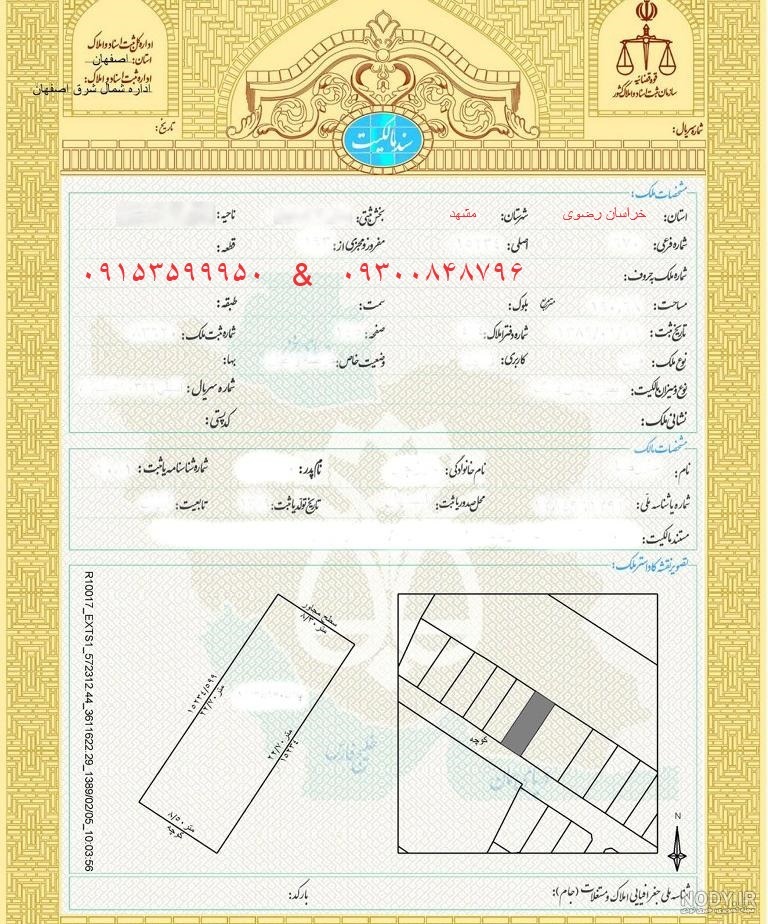 قوه قضائیه
سازمان ثبت اسناد و املاک کشور
اداره کل ثبت اسناد و املاک
استان: اصفهان
اداره ثبت اسناد و املاک:
اداره شمال شرق اصفهان
شماره سریال:
تاریخ:
سند مالکیت
مشخصات ملک:
استان: خراسان رضوی شهرستان: مشهد بخش ثبتی: ناحیه:
شماره فرعی: اصلی: مفروز و مجزی از: قطعه:
شماره ملک به حروف: ۰۹۳۰۰۸۴۸۷۹۶ & ۰۹۱۵۳۵۹۹۹۵۰
مساحت: مترمربع بلوک: سمت: طبقه:
تاریخ ثبت: شماره دفتر املاک: صفحه: شماره ثبت ملک:
نوع ملک: کاربری: وضعیت خاص: بها:
نوع و میزان مالکیت: شماره سریال:
نشانی ملک: کدپستی:
مشخصات مالک
نام: نام خانوادگی: نام پدر: شماره شناسنامه یا ثبت:
شماره یا شناسه ملی: محل صدور یا ثبت: تاریخ تولد یا ثبت: تابعیت:
مستند مالکیت:
تصویر نقشه کاداستر ملک:
R10017_EXTS1_572312.44_3611622.29_1389/02/05_10:03:56
سطح مجاور
متر ۸/۳۰
۱۵۲۳۴/۵۹۹
متر ۲۲/۷۰
متر ۲۲/۷۰
۱۵۲۳۴
متر ۸/۵۰
کوچه
کوچه
خلیج فارس
دریای عمان
N
شناسه ملی جغرافیایی املاک و مستغلات (جام): بارکد:
NODY.IR